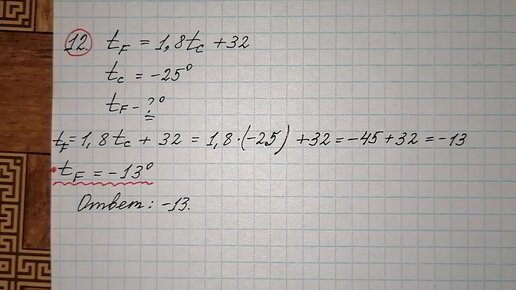 12. t_F = 1,8t_C + 32
t_C = -25°
t_F - ?°
t_F = 1,8t_C + 32 = 1,8·(-25) + 32 = -45 + 32 = -13
t_F = -13°
Ответ: -13.